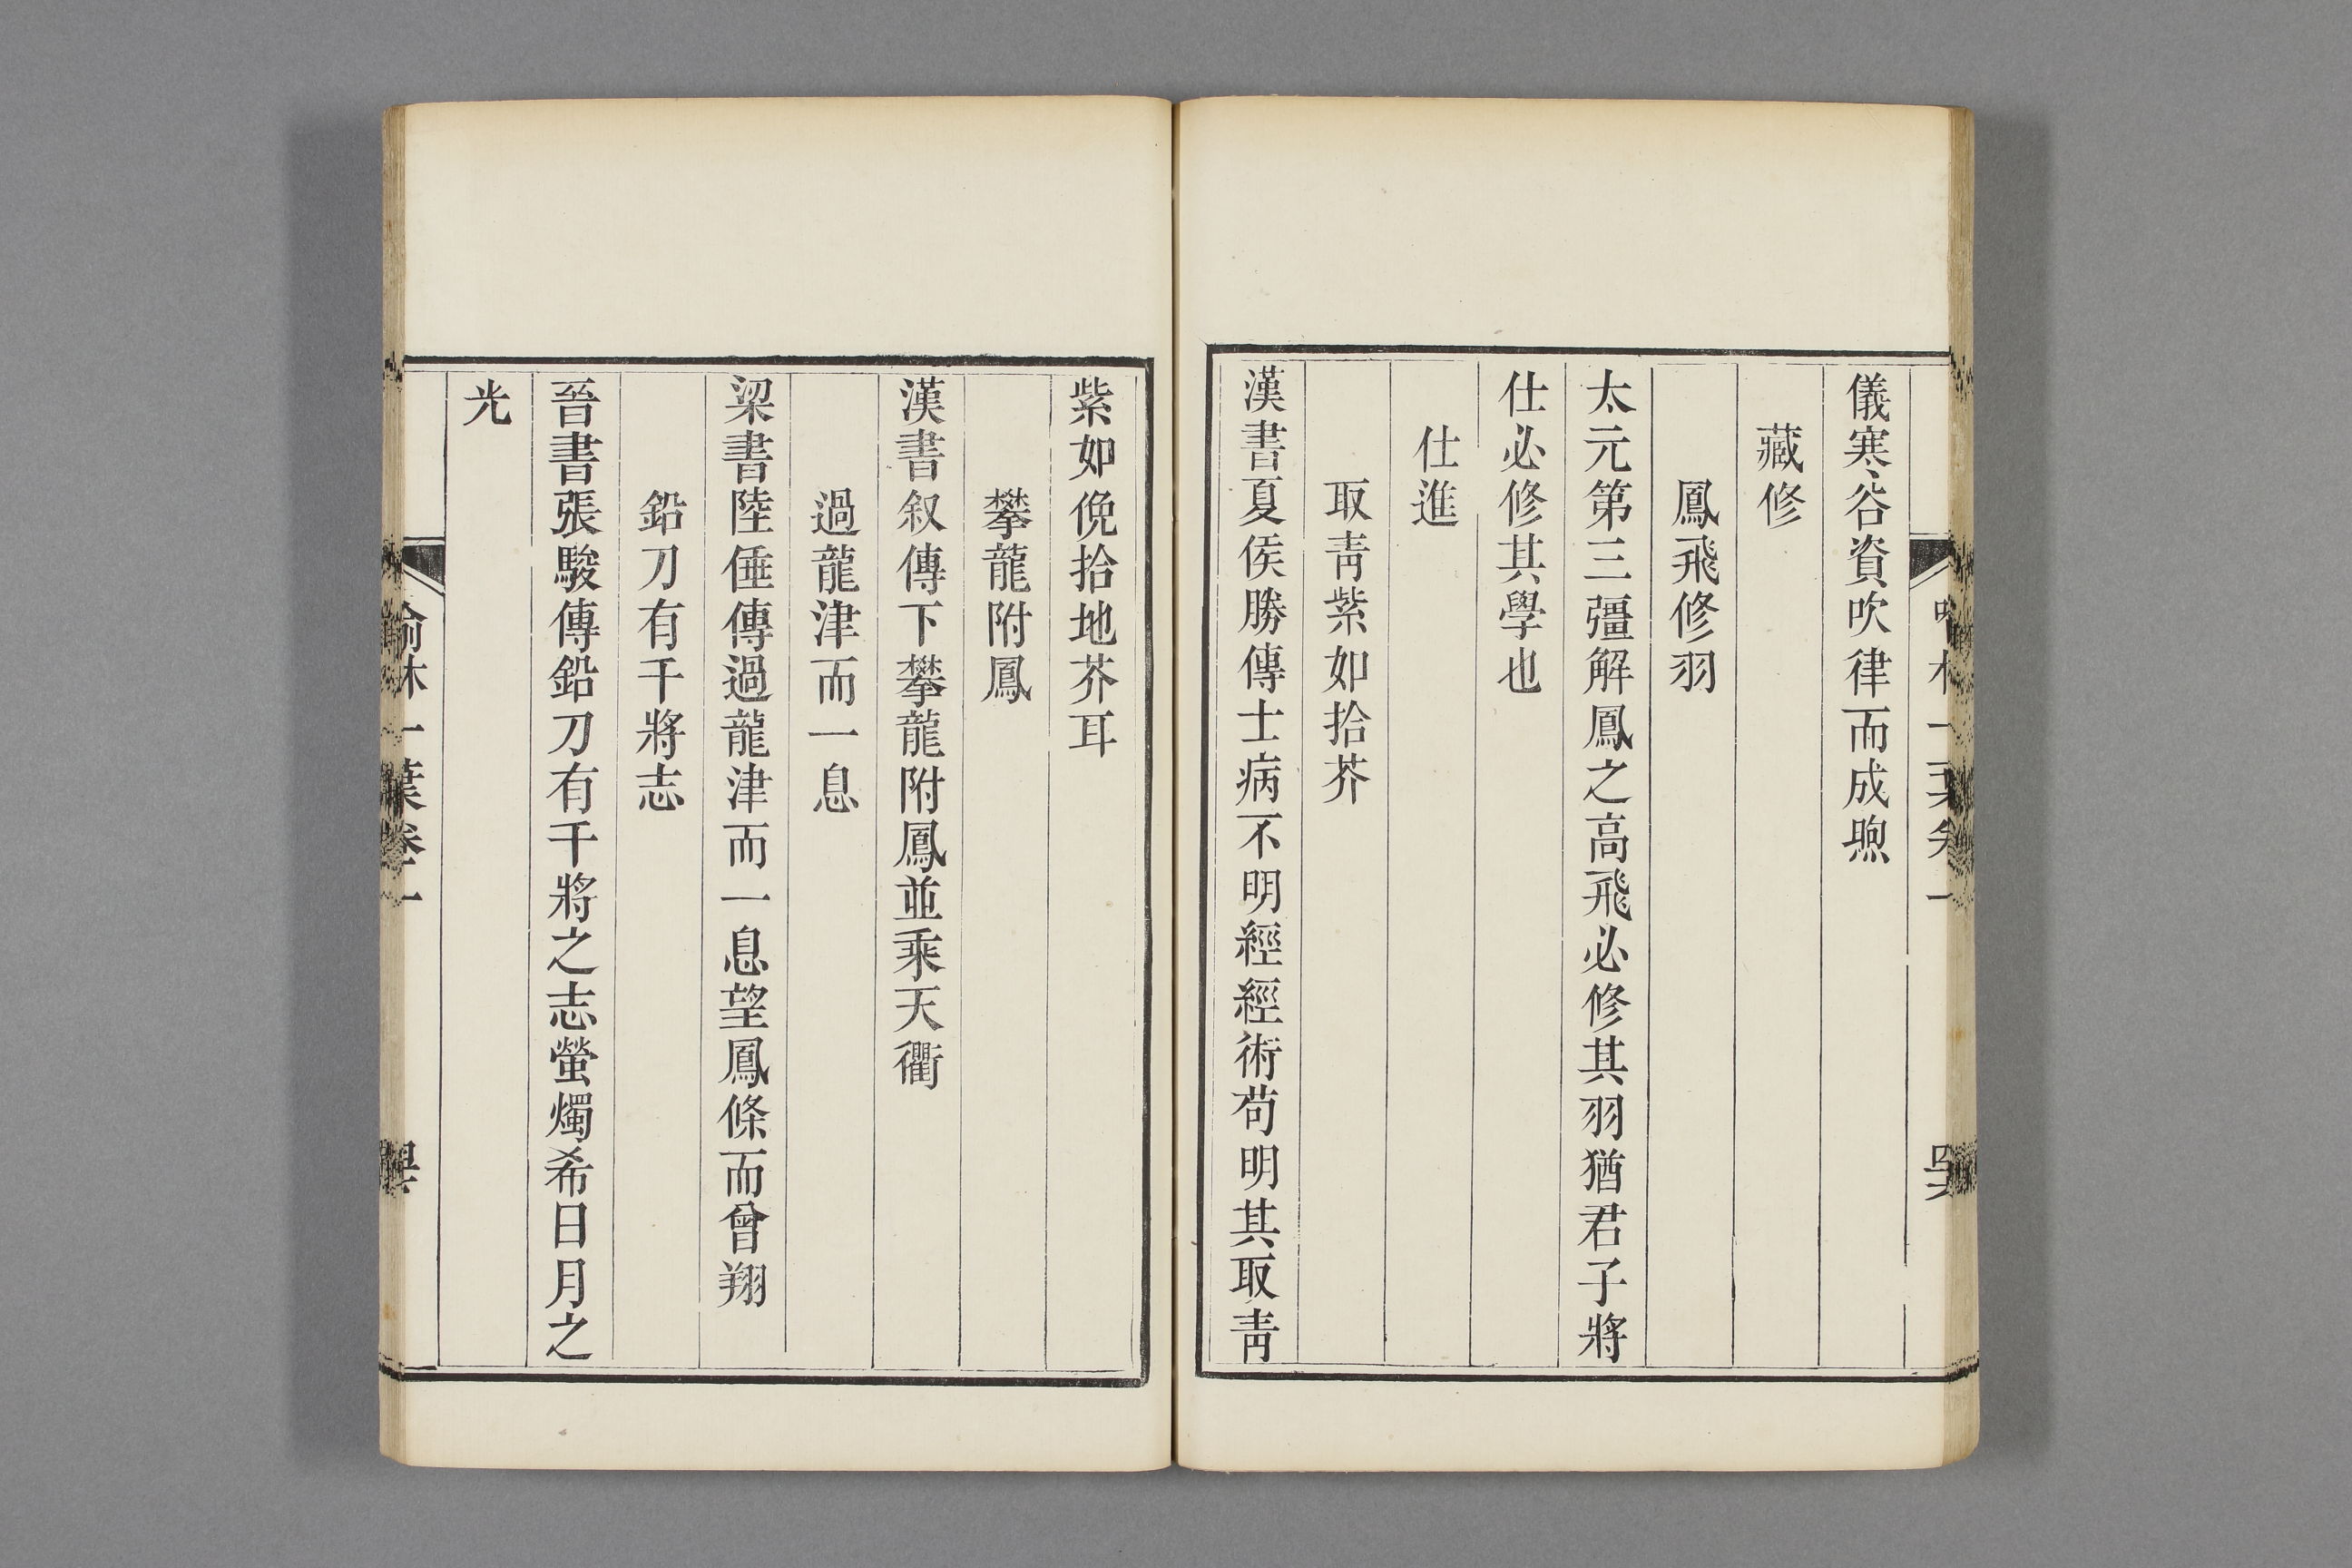 儀寒谷資吹律而成煦
藏修
鳳飛修羽
太元第三彊解鳳之高飛必修其羽猶君子將
仕必修其學也
仕進
取靑紫如拾芥
漢書夏侯勝傳士病不明經經術苟明其取靑
紫如俛拾地芥耳
攀龍附鳳
漢書叙傳下攀龍附鳳並乘天衢
過龍津而一息
梁書陸倕傳過龍津而一息望鳳條而曾翔
鉛刀有干將志
晉書張駿傳鉛刀有干將之志螢燭希日月之
光